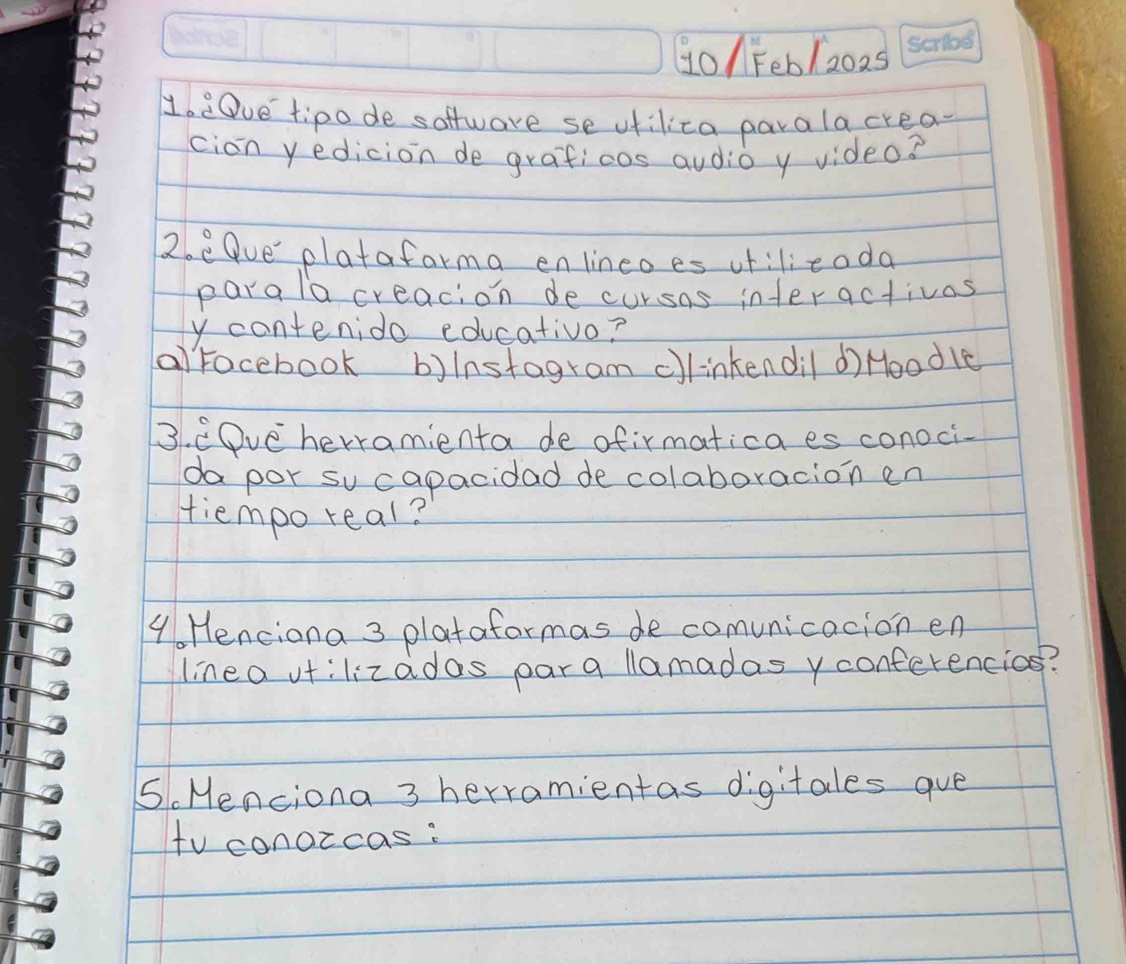 10/Feb/2025 Scribe
1. ¿Qué tipo de software se utiliza para la crea-
ción y edición de gráficos audio y video?
2. ¿Qué plataforma en linea es utilizada
para la creación de cursos interactivos
y contenido educativo?
a) Facebook b) Instagram c) Linkendil d) Moodle
3. ¿Qué herramienta de ofirmatica es conoci-
da por su capacidad de colaboración en
tiempo real?
4. Menciona 3 plataformas de comunicación en
línea utilizadas para llamadas y conferencias?
5. Menciona 3 herramientas digitales que
tu conozcas: